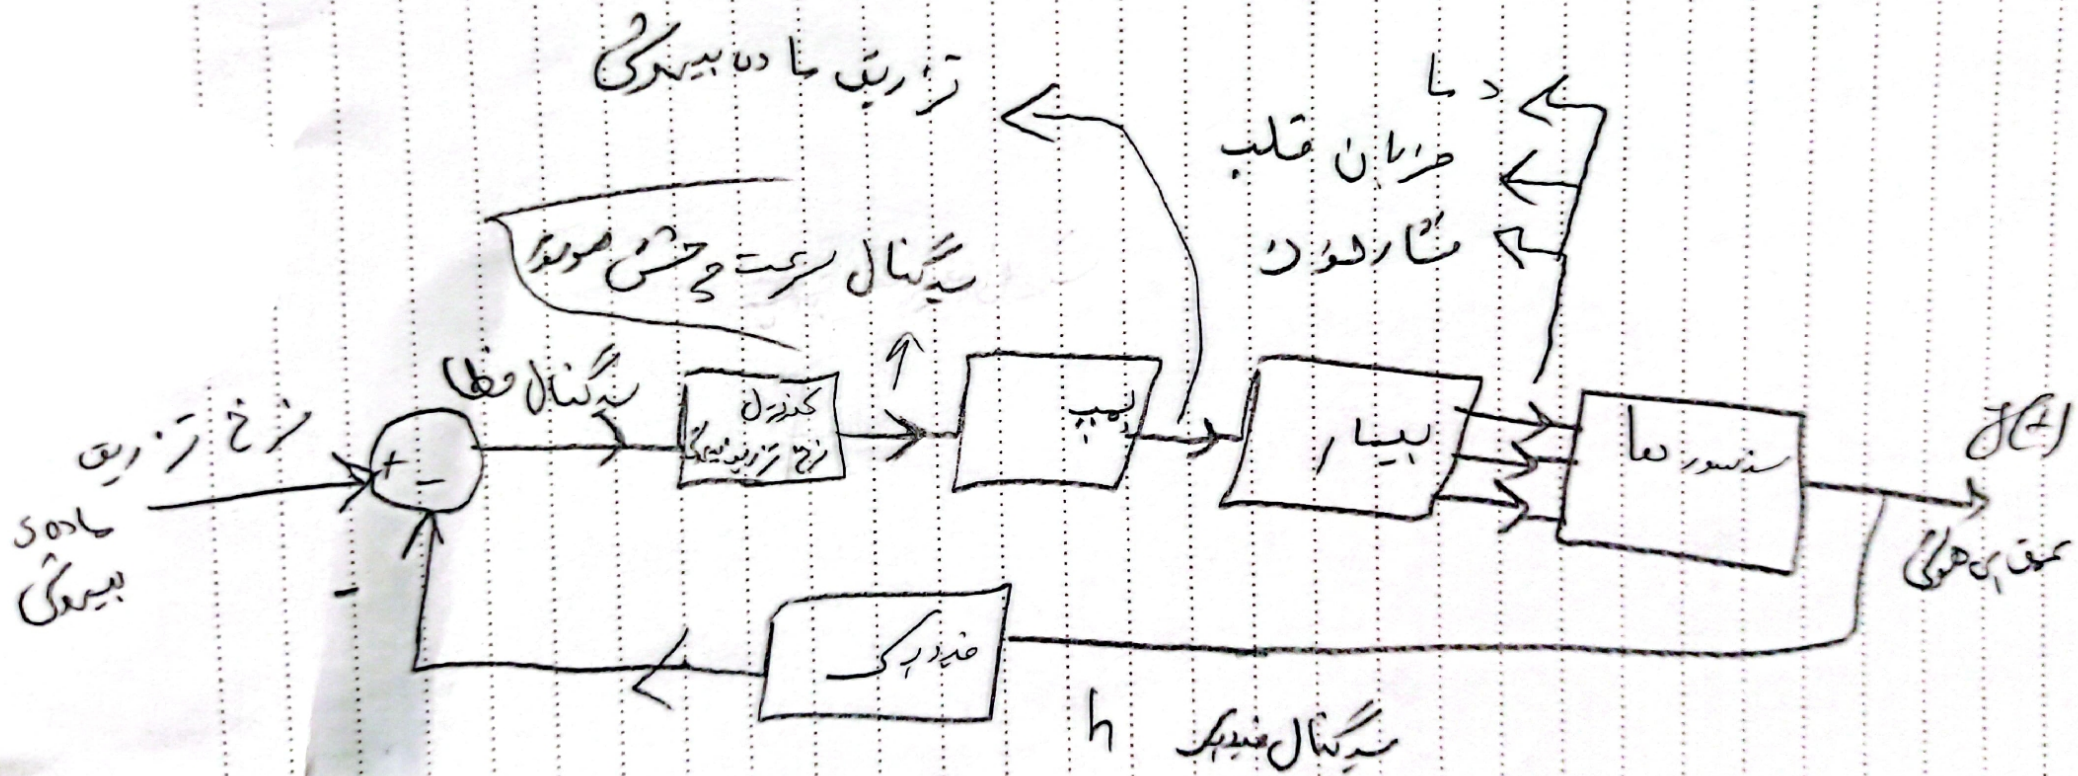 تزریق ماده بیهوشی
دما
ضربان قلب
فشار خون
سیگنال سرعت چرخش موتور
سیگنال خطا
نرخ تزریق
ماده‌ی
بیهوشی
+
-
کنترل
نرخ تزریق
پمپ
بیمار
سنسورها
y(t)
عمق بی هوشی
-
فیدبک
h
سیگنال فیدبک